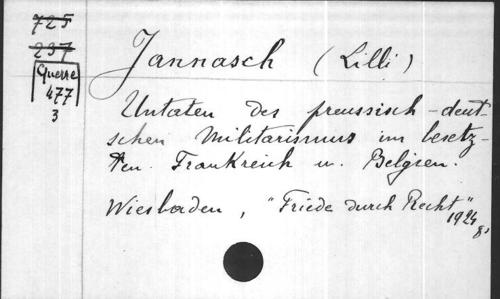 725
237
Guerre
477
3
Jannasch (Lilli)
Untaten des preussisch-deut-
schen Militarismus im besetz-
ten Frankreich u. Belgien.
Wiesbaden, "Friede durch Recht"
1924
8°